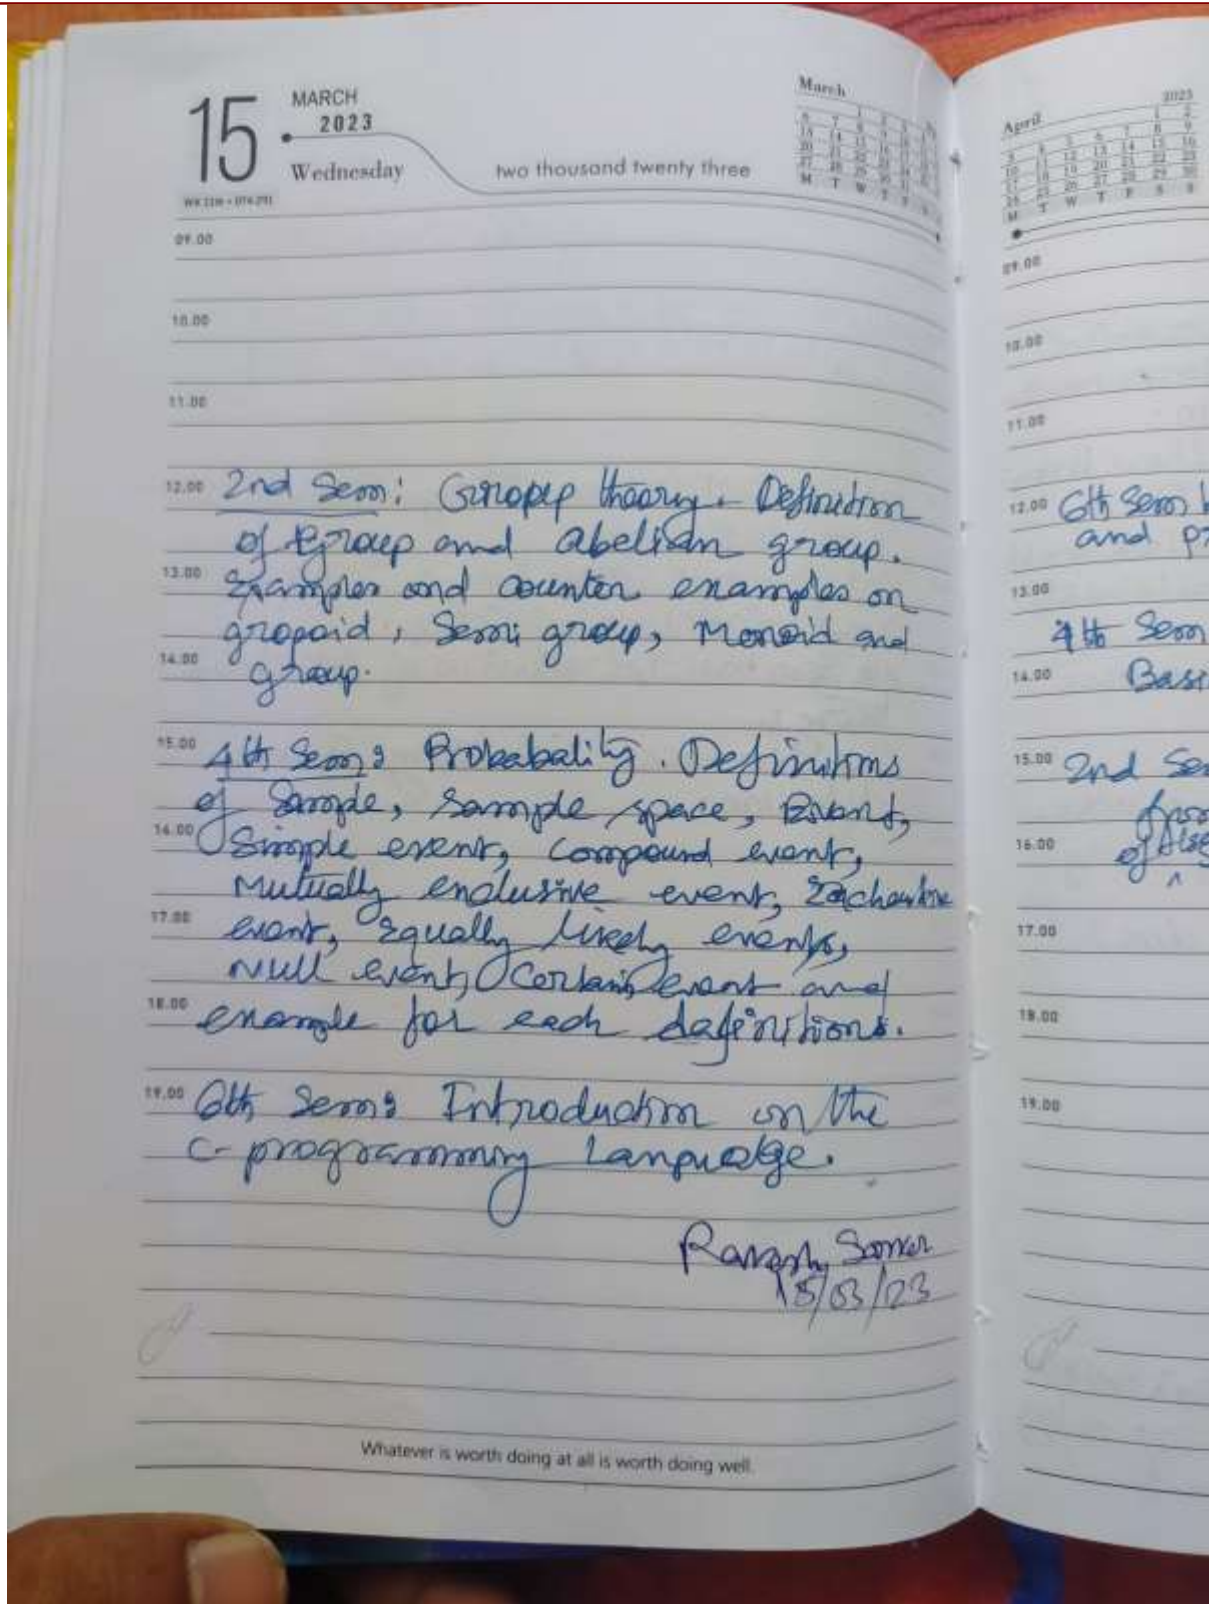 15
MARCH
2023
Wednesday
two thousand twenty three
March
M T W T F S S
09.00
10.00
11.00
12.00 2nd Sem: Group theory. Definition
of Group and abelian group.
13.00 Examples and counter examples on
gropoid, Semi group, Monoid and
14.00 group.
15.00 4th Sem: Probabality. Definitions
of Sample, Sample space, Event,
16.00 Simple event, compound event,
Mutually exclusive event, Exhaustive
17.00 event, Equally likely events,
Null event, Certain event and
18.00 example for each definitions.
19.00 6th Sem: Introduction on the
C-programming Language.
15/03/23
Whatever is worth doing at all is worth doing well.
April
2023
M T W T F S S
09.00
10.00
11.00
12.00 6th Sem
and
13.00
4th Sem
14.00
15.00 2nd
16.00 of
17.00
18.00
19.00